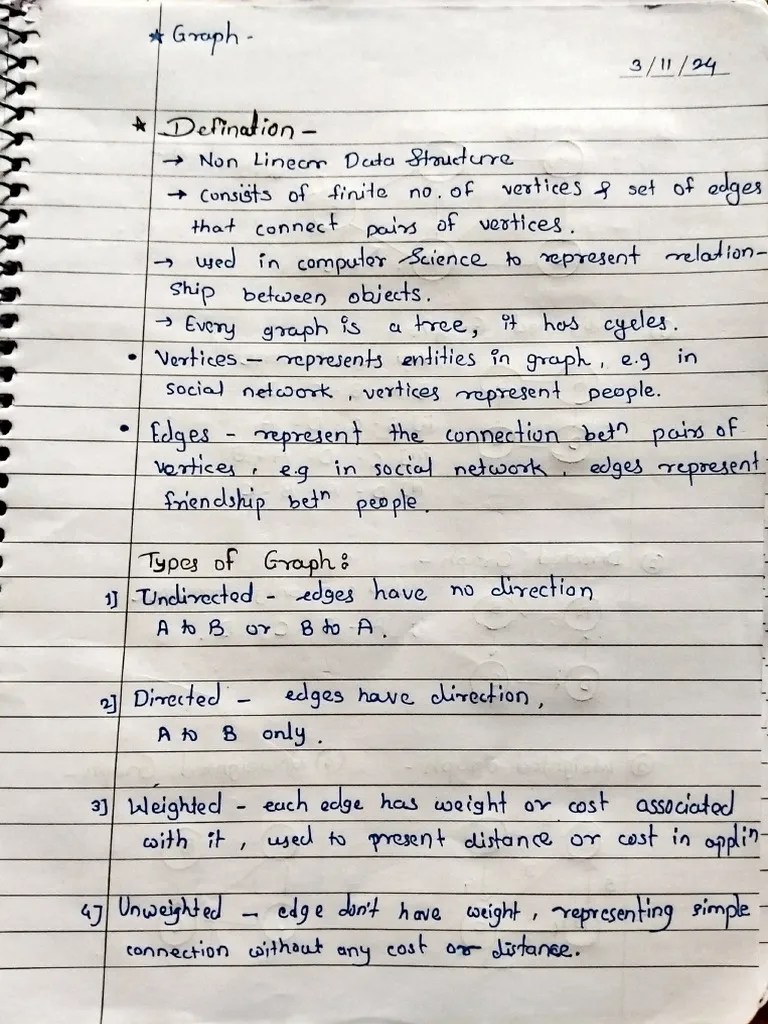 * Graph -
3/11/24
* Defination -
→ Non Linear Data Structure
→ consists of finite no. of vertices & set of edges
that connect pairs of vertices.
→ used in computer Science to represent relation-
ship between objects.
→ Every graph is a tree, it has cycles.
• Vertices - represents entities in graph, e.g in
social network, vertices represent people.
• Edges - represent the connection betⁿ pairs of
vertices, e.g in social network, edges represent
friendship betⁿ people.
Types of Graph:
1] Undirected - edges have no direction
A to B or B to A.
2] Directed - edges have direction,
A to B only.
3] Weighted - each edge has weight or cost associated
with it, used to present distance or cost in appliⁿ
4] Unweighted - edge don't have weight, representing simple
connection without any cost or distance.